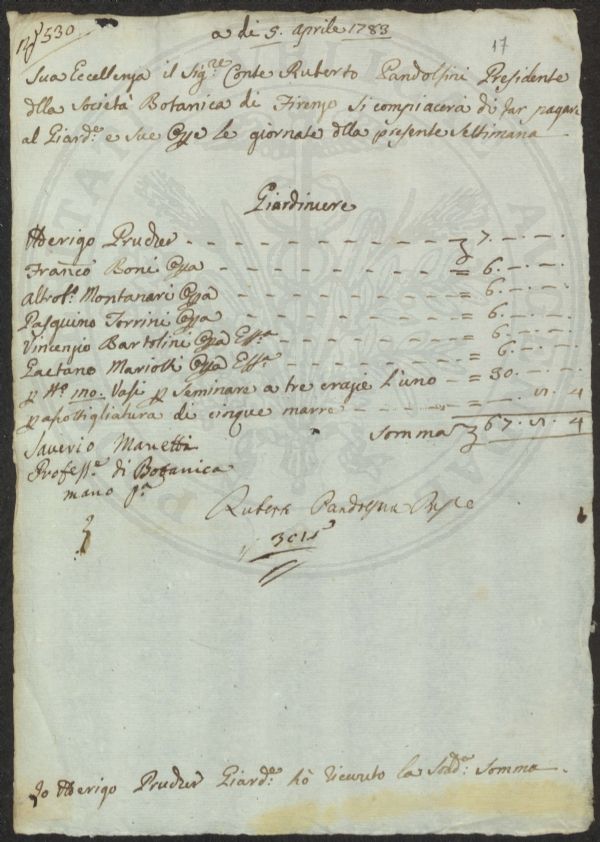 530
a di 5. Aprile 1783
17
Sua Eccellenza il Sig.re Conte Ruberto Pandolfini Presidente
dlla Società Botanica di Firenze si compiacerà di far pagare
al Giard.e e sue Opre le giornate dlla presente Settimana
Giardiniere
Aderigo Prucker - - - 7. - . -
Franc.o Boni Opra - - - = 6. - . -
Montanari Opra - - - = 6. - . -
Pasquino Torrini Opra - - - = 6. - . -
Vincenzio Bartolini Opra - - - = 6. - . -
Gaetano Mariotti Opra - - - = 6. - . -
p Vasi p Seminare a tre crazie l'uno - = 30. - . -
p di cinque marre - - - = - . 4
Somma 67. 4
Saverio Manetti
Profess.e di Botanica
mano p.a
Pandolfini
Io Aderigo Prucker Giard.e hò ricevuto la Sodd.a Somma.